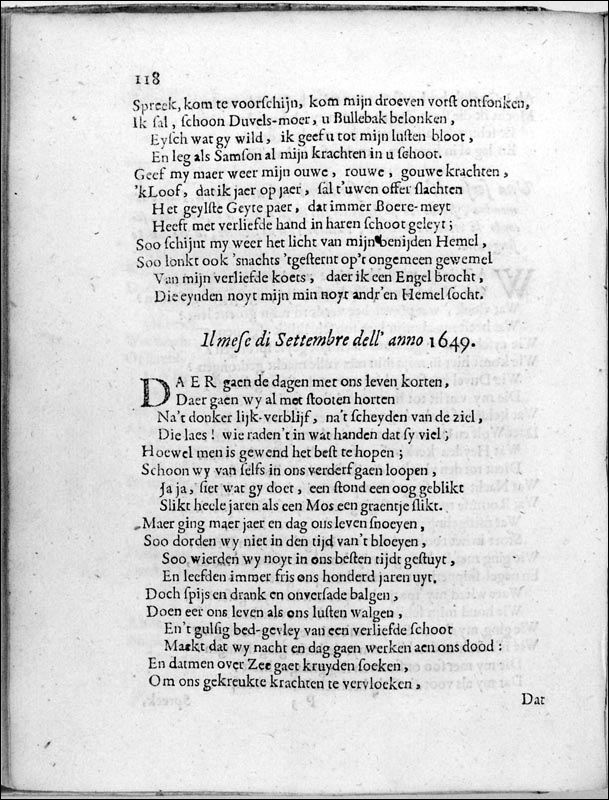 118
Spreek, kom te voorschijn, kom mijn droeven vorst ontfonken,
Ik sal, schoon Duvels-moer, u Bullebak belonken,
Eysch wat gy wild, ik geef u tot mijn lusten bloot,
En leg als Samson al mijn krachten in u schoot.
Geef my maer weer mijn ouwe, rouwe, gouwe krachten,
'k Loof, dat ik jaer op jaer, sal t'uwen offer slachten
Het geylste Geyte paer, dat immer Boere-meyt
Heeft met verliefde hand in haren schoot geleyt;
Soo schijnt my weer het licht van mijn benijden Hemel,
Soo lonkt ook 'snachts 'tgesternt op't ongemeen gewemel
Van mijn verliefde koets, daer ik een Engel brocht,
Die eynden noyt mijn min noyt andr'en Hemel socht.
Il mese di Settembre dell' anno 1649.
DAER gaen de dagen met ons leven korten,
Daer gaen wy al met stooten horten
Na't donker lijk-verblijf, na't scheyden van de ziel,
Die laes! wie raden't in wat handen dat sy viel;
Hoewel men is gewend het best te hopen;
Schoon wy van selfs in ons verderf gaen loopen,
Ja ja, siet wat gy doet, een stond een oog geblikt
Slikt heele jaren als een Mos een graentje slikt.
Maer ging maer jaer en dag ons leven snoeyen,
Soo dorden wy niet in den tijd van't bloeyen,
Soo wierden wy noyt in ons besten tijdt gestuyt,
En leefden immer fris ons honderd jaren uyt,
Doch spijs en drank en onversade balgen,
Doen eer ons leven als ons lusten walgen,
En't gulsig bed-gevley van een verliefde schoot
Maekt dat wy nacht en dag gaen werken aen ons dood:
En datmen over Zee gaet kruyden soeken,
Om ons gekreukte krachten te vervloeken,
Dat